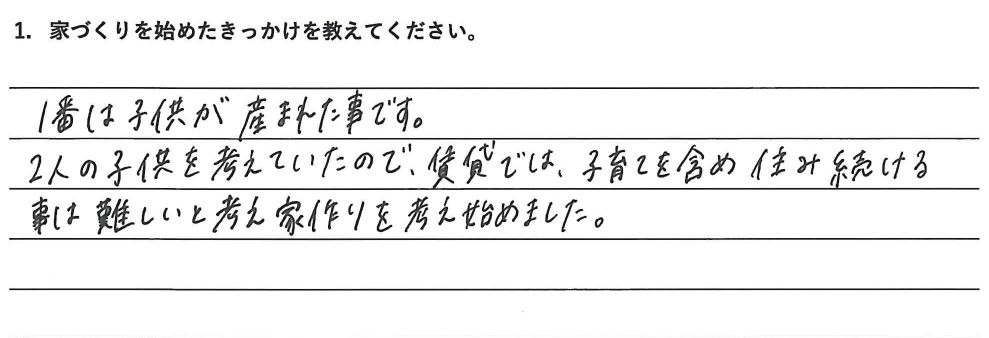 1. 家づくりを始めたきっかけを教えてください。
1番は子供が産まれた事です。
2人の子供を考えていたので、賃貸では、子育てを含め住み続ける
事は難しいと考え家作りを考え始めました。